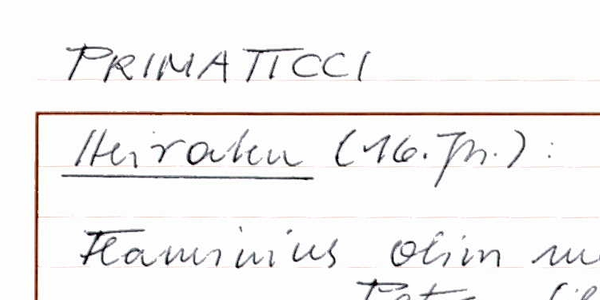 PRIMATICCI
Heiraten (16. Jh.):
Flaminius olim
Petr